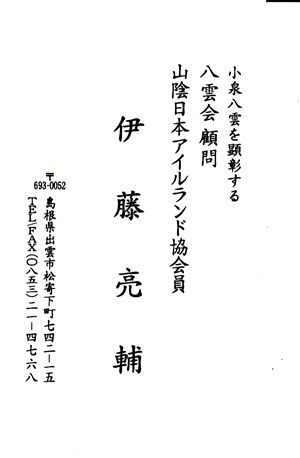 小泉八雲を顕彰する
八雲会 顧問
山陰日本アイルランド協会員
伊藤亮輔
〒
693-0052
島根県出雲市松寄下町七四二－一五
TEL/FAX(〇八五三)二一－四七六八